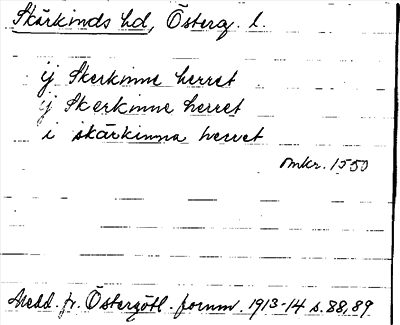 Skärkinds hd, Österg. l.
ij Skerkinne herret
ij Skerkinne herret
i skärkinna herret
omkr. 1550
Medd. fr. Östergötl. fornm. 1913-14 s. 88, 89